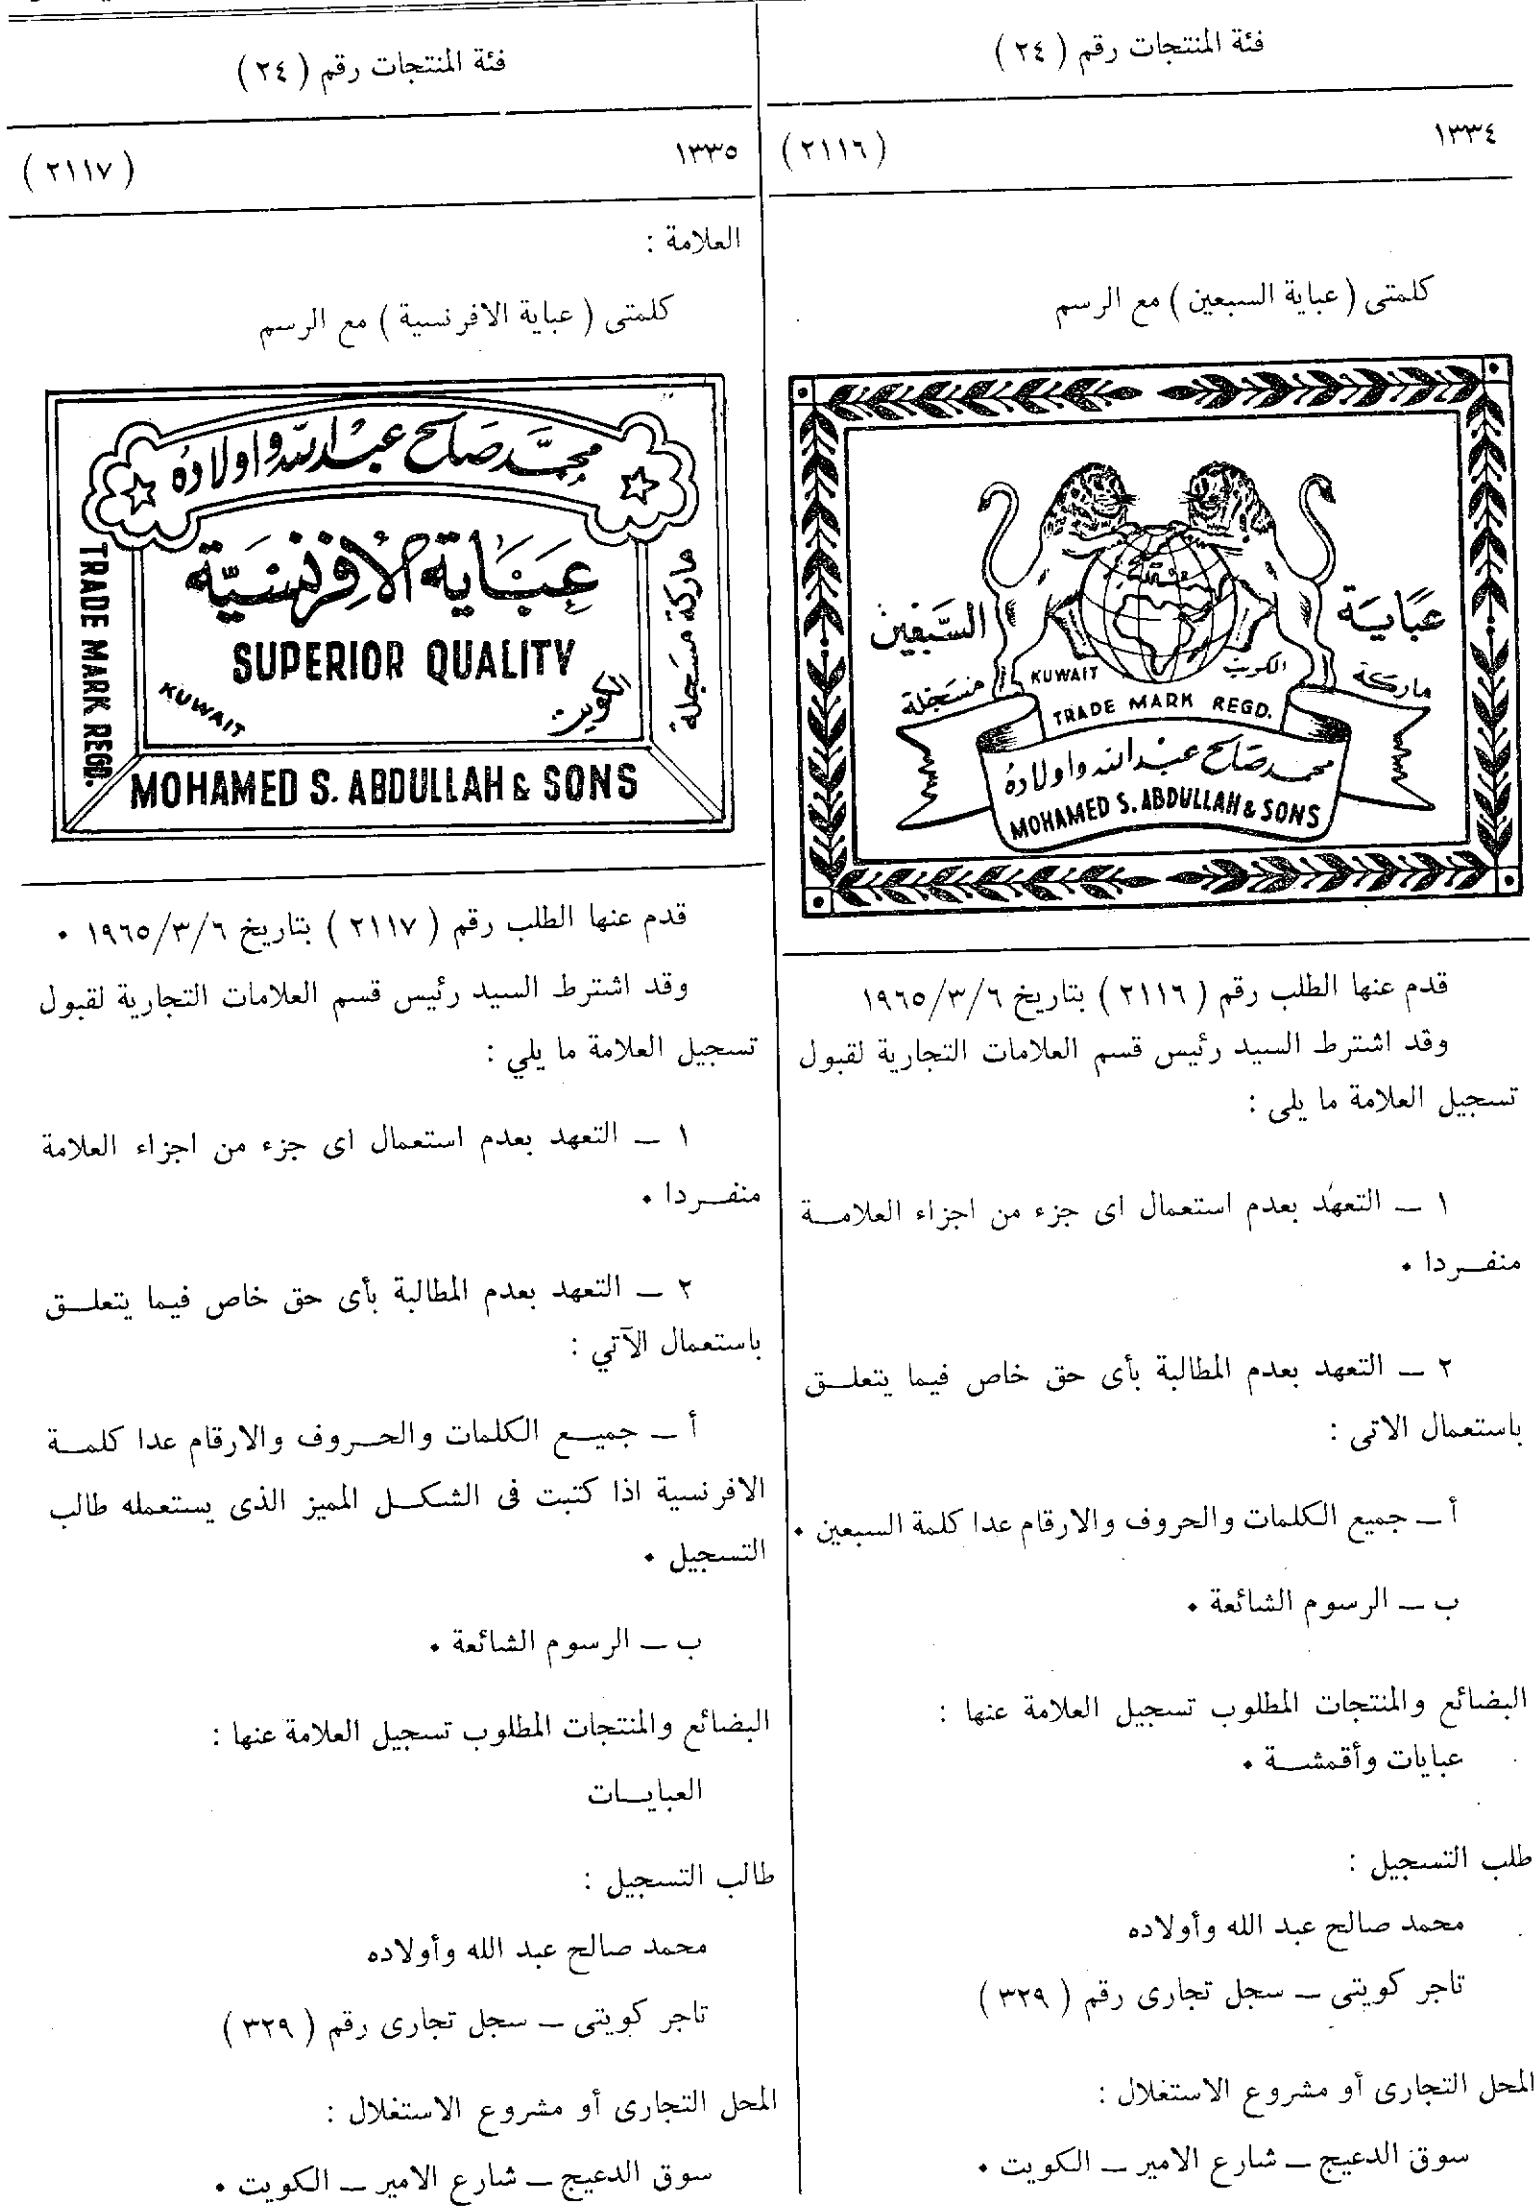 فئة المنتجات رقم ( ٢٤ )
١٣٣٤ ( ٢١١٦ )
كلمتى ( عباية السبعين ) مع الرسم
عباية
السبعين
KUWAIT
الكويت
ماركة
مسجلة
TRADE MARK REGD.
محمد صالح عبدالله واولاده
MOHAMED S. ABDULLAH & SONS
قدم عنها الطلب رقم ( ٢١١٦ ) بتاريخ ١٩٦٥/٣/٦
وقد اشترط السيد رئيس قسم العلامات التجارية لقبول
تسجيل العلامة ما يلى :
١ ــ التعهد بعدم استعمال اى جزء من اجزاء العلامــة
منفــردا •
٢ ــ التعهد بعدم المطالبة بأى حق خاص فيما يتعلــق
باستعمال الاتى :
أ ــ جميع الكلمات والحروف والارقام عدا كلمة السبعين •
ب ــ الرسوم الشائعة •
البضائع والمنتجات المطلوب تسجيل العلامة عنها :
عبايات وأقمشــة •
طلب التسجيل :
محمد صالح عبد الله وأولاده
تاجر كويتى ــ سجل تجارى رقم ( ٣٢٩ )
المحل التجارى أو مشروع الاستغلال :
سوق الدعيج ــ شارع الامير ــ الكويت •
فئة المنتجات رقم ( ٢٤ )
١٣٣٥ ( ٢١١٧ )
العلامة :
كلمتى ( عباية الافرنسية ) مع الرسم
محمد صالح عبدالله واولاده
عباية الافرنسية
SUPERIOR QUALITY
KUWAIT
الكويت
ماركة مسجلة
TRADE MARK REGD.
MOHAMED S. ABDULLAH & SONS
قدم عنها الطلب رقم ( ٢١١٧ ) بتاريخ ١٩٦٥/٣/٦ •
وقد اشترط السيد رئيس قسم العلامات التجارية لقبول
تسجيل العلامة ما يلي :
١ ــ التعهد بعدم استعمال اى جزء من اجزاء العلامة
منفــردا •
٢ ــ التعهد بعدم المطالبة بأى حق خاص فيما يتعلــق
باستعمال الآتي :
أ ــ جميــع الكلمات والحــروف والارقام عدا كلمــة
الافرنسية اذا كتبت فى الشكــل المميز الذى يستعمله طالب
التسجيل •
ب ــ الرسوم الشائعة •
البضائع والمنتجات المطلوب تسجيل العلامة عنها :
العبايــات
طالب التسجيل :
محمد صالح عبد الله وأولاده
تاجر كويتى ــ سجل تجارى رقم ( ٣٢٩ )
المحل التجارى أو مشروع الاستغلال :
سوق الدعيج ــ شارع الامير ــ الكويت •